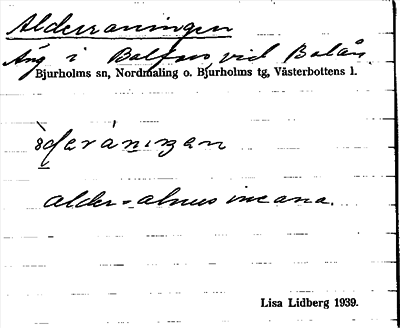 Alderraningen
Äng i Balfors vid Balån.
Bjurholms sn, Nordmaling o. Bjurholms tg, Västerbottens l.
alder = alnus incana.
Lisa Lidberg 1939.